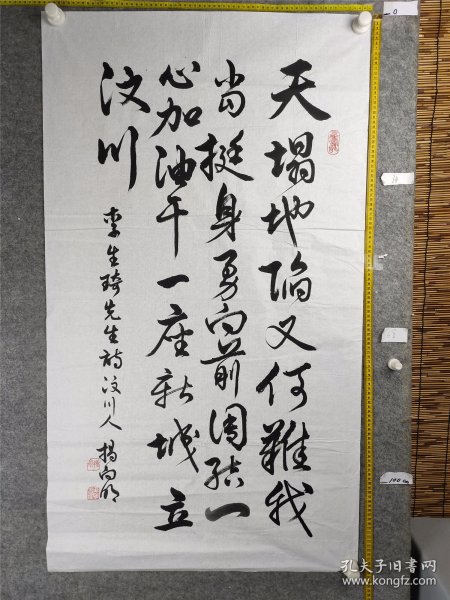 天塌地陷又何难我
当挺身勇向前团结一
心加油干一座新城立
汶川
李生琦先生诗汶川人杨向明
0
100cm
孔夫子旧书网
www.kongfz.com